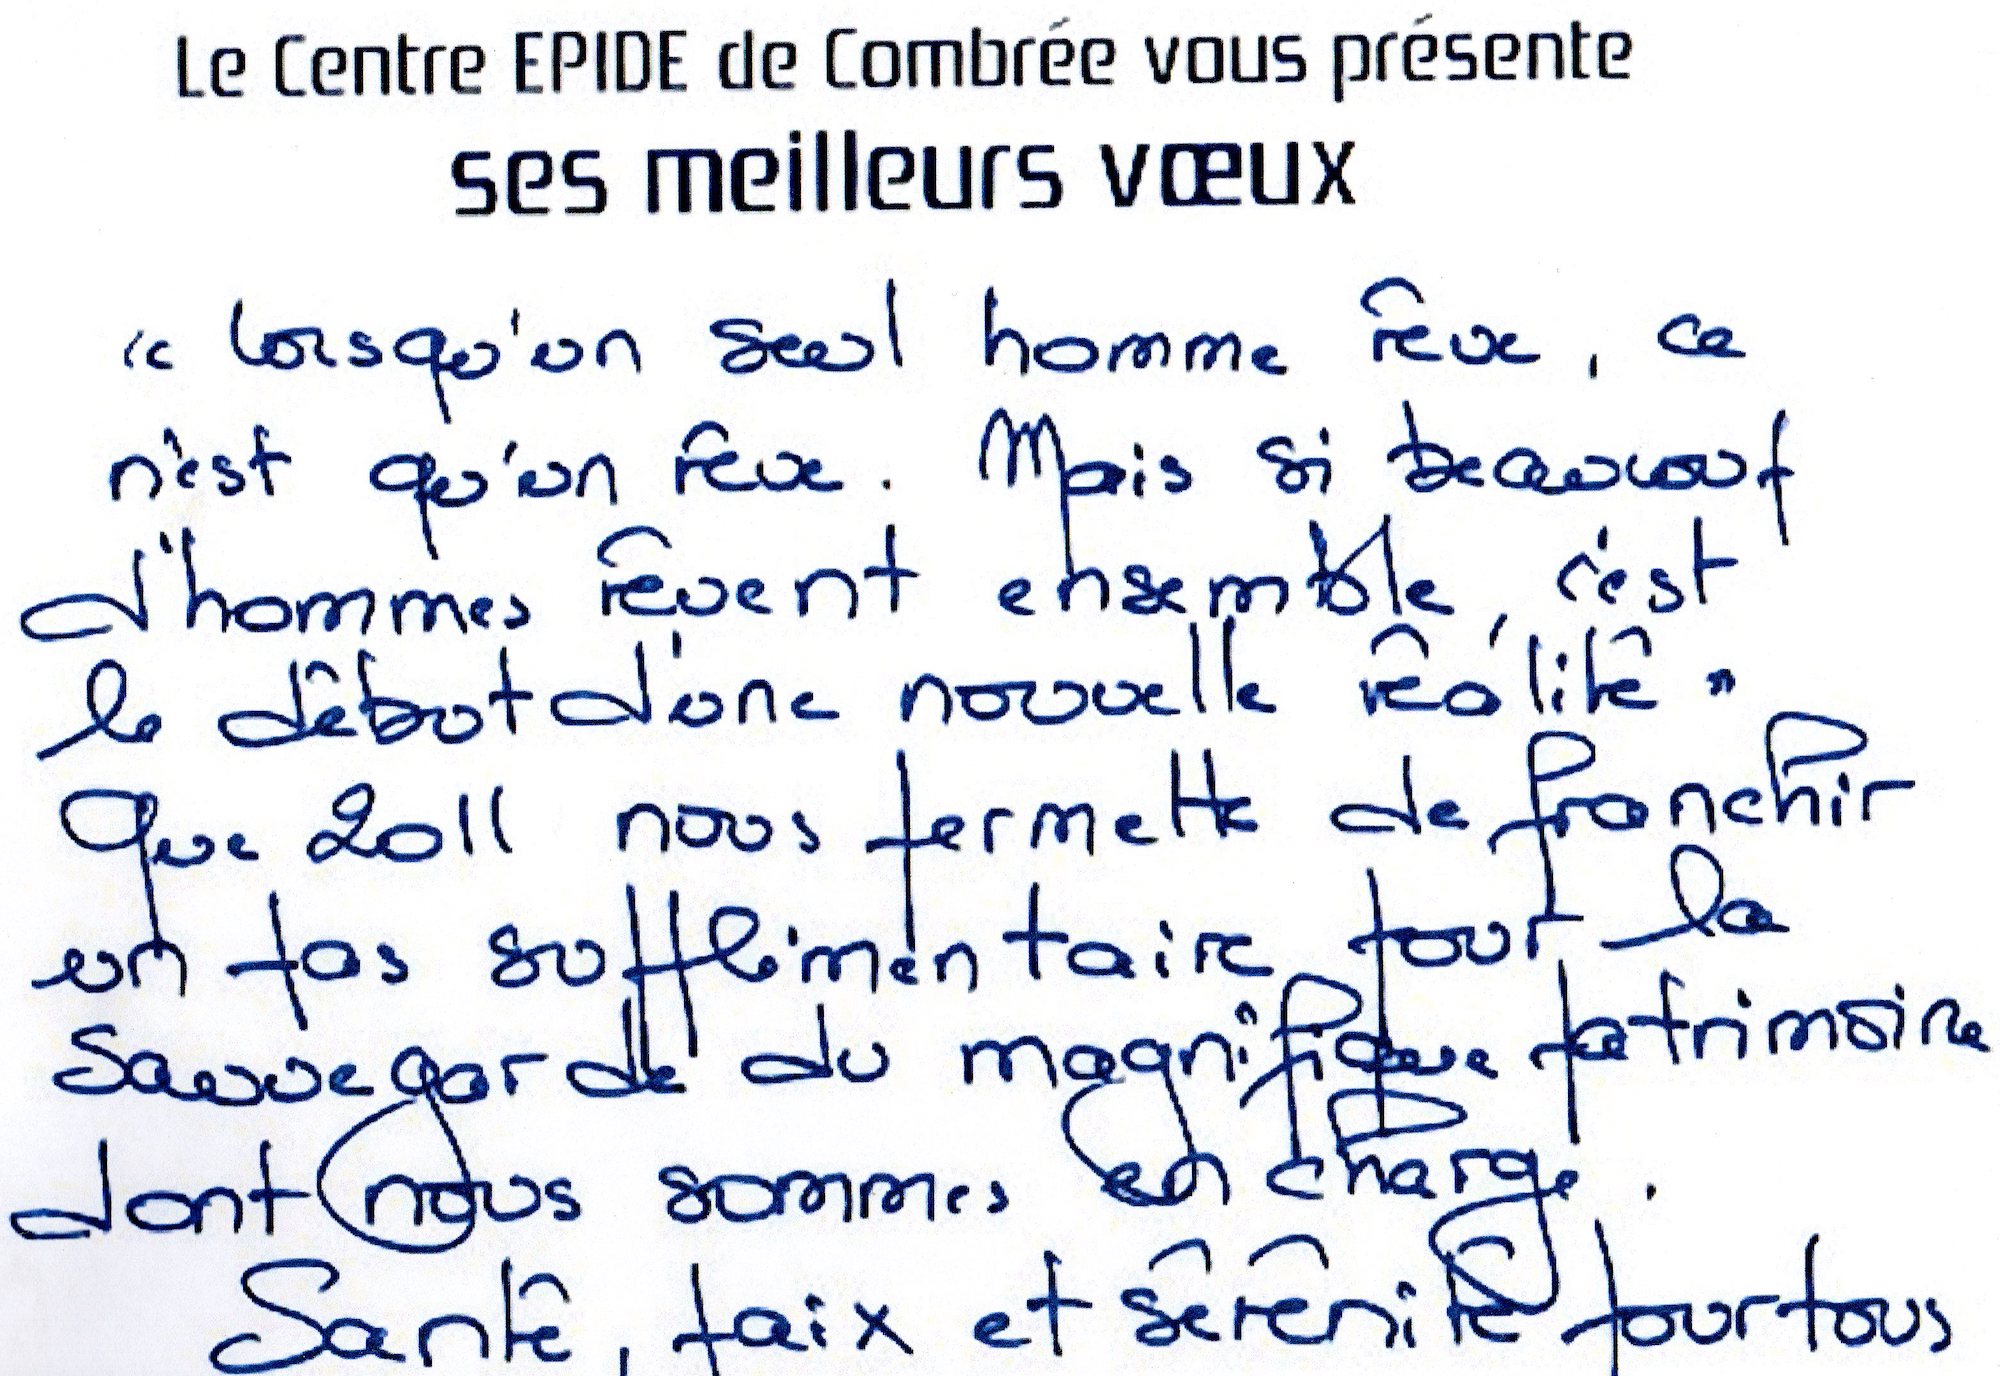 Le Centre EPIDE de Combrée vous présente
ses meilleurs vœux
"Lorsqu'un seul homme rêve, ce
n'est qu'un rêve. Mais si beaucoup
d'hommes rêvent ensemble, c'est
le début d'une nouvelle réalité"
Que 2011 nous permette de franchir
un pas supplémentaire pour la
sauvegarde du magnifique patrimoine
dont nous sommes en charge.
Santé, paix et sérénité pour tous